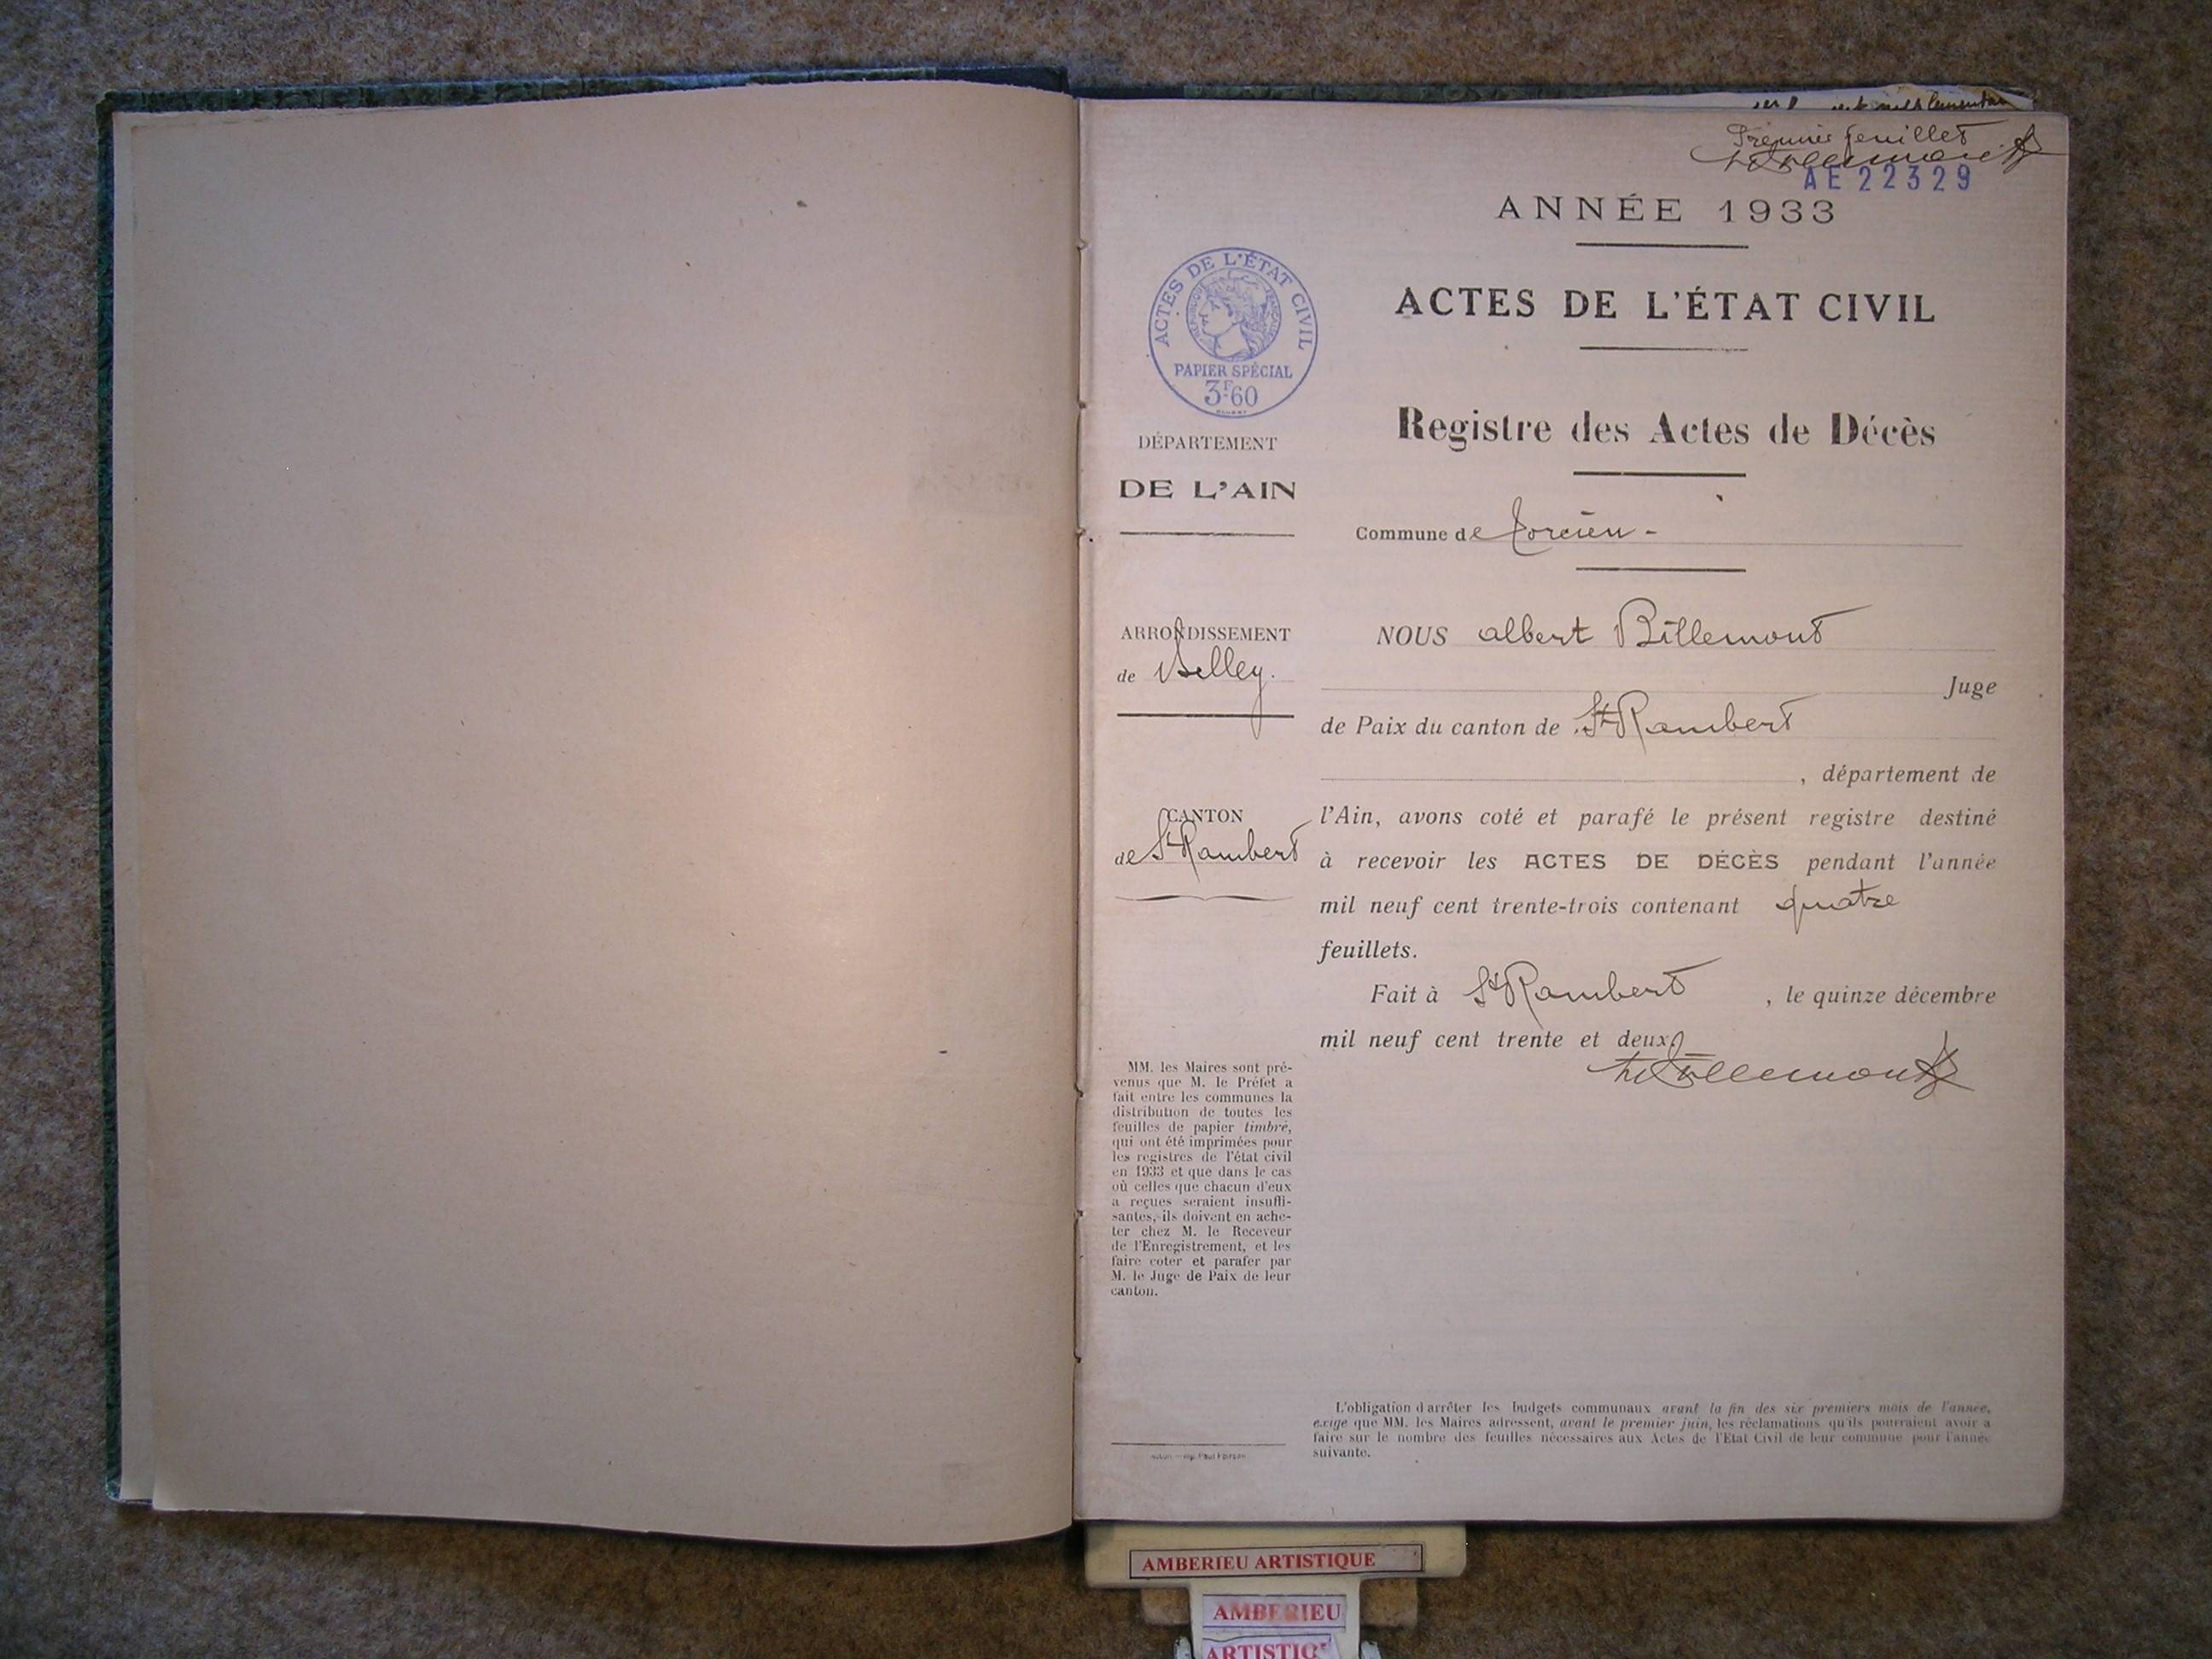 Premier feuillet
AE22329
ANNÉE 1933
ACTES DE L'ÉTAT CIVIL
RÉPUBLIQUE FRANÇAISE
PAPIER SPÉCIAL
3F.60
ACTES DE L'ÉTAT CIVIL
Registre des Actes de Décès
DÉPARTEMENT
DE L'AIN
Commune de Torcieu -
ARRONDISSEMENT
de Belley.
CANTON
de St Rambert
NOUS albert Billemont
Juge
de Paix du canton de St Rambert
, département de
l'Ain, avons coté et parafé le présent registre destiné
à recevoir les ACTES DE DÉCÈS pendant l'année
mil neuf cent trente-trois contenant quatre
feuillets.
Fait à St Rambert , le quinze décembre
mil neuf cent trente et deux.
Billemont
MM. les Maires sont pré-
venus que M. le Préfet a
fait entre les communes la
distribution de toutes les
feuilles de papier timbré,
qui ont été imprimées pour
les registres de l'état civil
en 1933 et que dans le cas
où celles que chacun d'eux
a reçues seraient insuffi-
santes, ils doivent en ache-
ter chez M. le Receveur
de l'Enregistrement, et les
faire coter et parafer par
M. le Juge de Paix de leur
canton.
L'obligation d'arrêter les budgets communaux avant la fin des six premiers mois de l'année,
exige que MM. les Maires adressent, avant le premier juin, les réclamations qu'ils pourraient avoir a
faire sur le nombre des feuilles nécessaires aux Actes de l'Etat Civil de leur commune pour l'année
suivante.
AMBERIEU ARTISTIQUE
AMBERIEU
ARTISTIQ